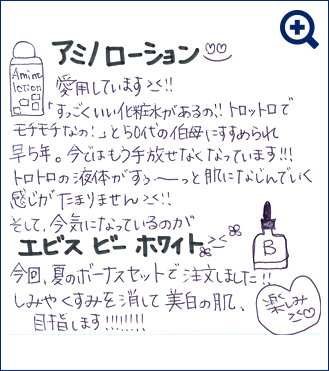 アミノローション
Amino
lotion
愛用しています><!!
「すっごくいい化粧水があるの!! トロットロで
モチモチなの!」と50代の伯母にすすめられ
早5年。今ではもう手放せなくなっています!!!
トロトロの液体がすぅ〜っと肌になじんでいく
感じがたまりません><!!
そして、今気になっているのが
エビス ビー ホワイト><
B
今回、夏のボーナスセットで注文しました!!
しみやくすみを消して美白の肌、
目指します!!!!!!!!
楽しみ
><